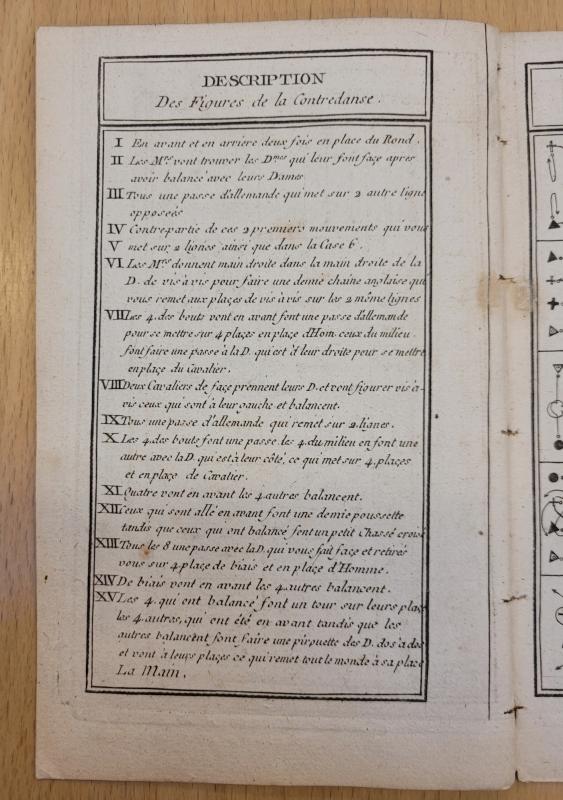 DESCRIPTION
Des Figures de la Contredanse.
I En avant et en arriere deux fois en place du Rond.
II Les Mrs vont trouver les Dmes qui leur font face apres
avoir balancé avec leurs Dames
III Tous une passe d'allemande qui met sur 2 autre ligne
opposeés
IV Contre-partie de ces 2 premiers mouvements qui vous
V met sur 2 lignes ainsi que dans la Case 6.
VI Les Mrs donnent main droite dans la main droite de la
D. de vis à vis pour faire une demie chaine anglaise qui
vous remet aux places de vis à vis sur les 2 même lignes
VIII Les 4. des bouts vont en avant font une passe d'allemande
pour se mettre sur 4 places en place d'Hom. ceux du milieu
font faire une passe à la D. qui est à leur droite pour se mettre
en place du Cavalier.
VIII Deux Cavaliers de face prennent leurs D. et vont figurer vis à-
vis ceux qui sont à leur gauche et balancent.
IX Tous une passe d'allemande qui remet sur 2 lignes.
X Les 4. des bouts font une passe les 4. du milieu en font une
autre avec la D. qui est à leur côté, ce qui met sur 4. places
et en place de Cavalier.
XI Quatre vont en avant les 4. autres balancent.
XII Ceux qui sont allé en avant font une demie poussette
tandis que ceux qui ont balancé font un petit Chassé croisé
XIII Tous les 8 une passe avec la D. qui vous fait face et retirés
vous sur 4 place de biais et en place d'Homme.
XIV De biais vont en avant les 4. autres balancent.
XV Les 4. qui ont balancé font un tour sur leurs place
les 4. autres, qui ont été en avant tandis que les
autres balancent font faire une pirouette des D. dos à dos
et vont à leurs places ce qui remet tout le monde à sa place
La Main.